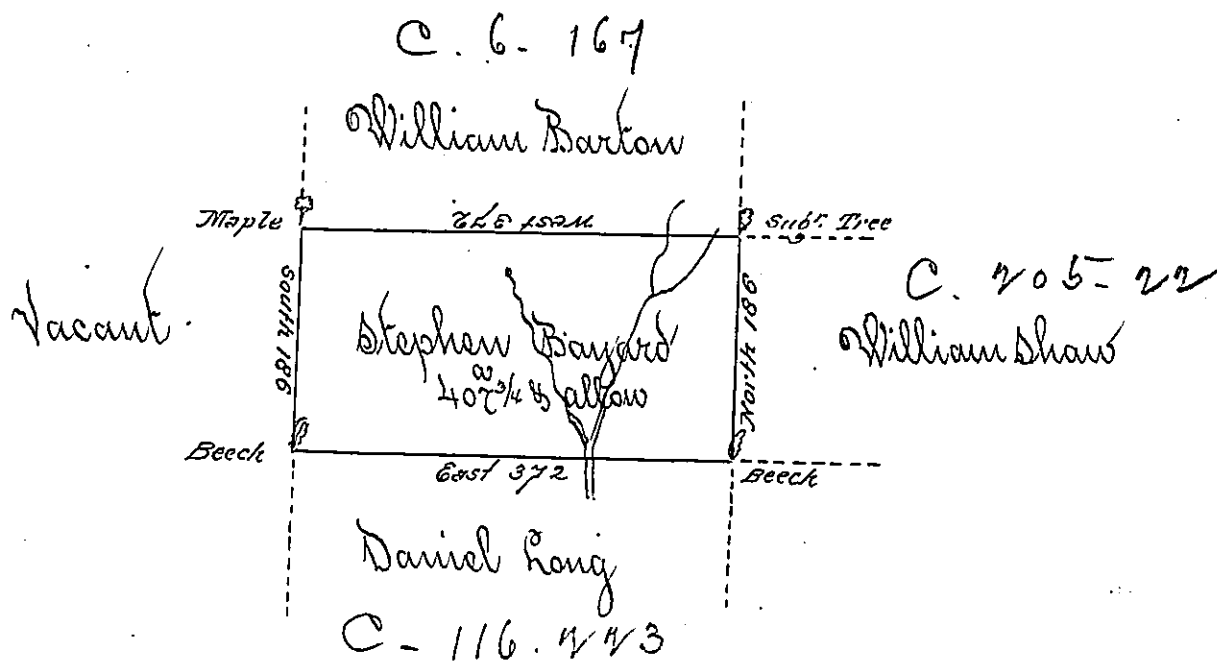 C. 6- 167
William Barton
Maple
West 372
Sub.r Tree
Vacant.
South 186
Stephen Bayard
a
407 3/4 & allow
North 186
C. 205-22
William Shaw
Beech
East 372
Beech
Daniel Long
C- 116. 223